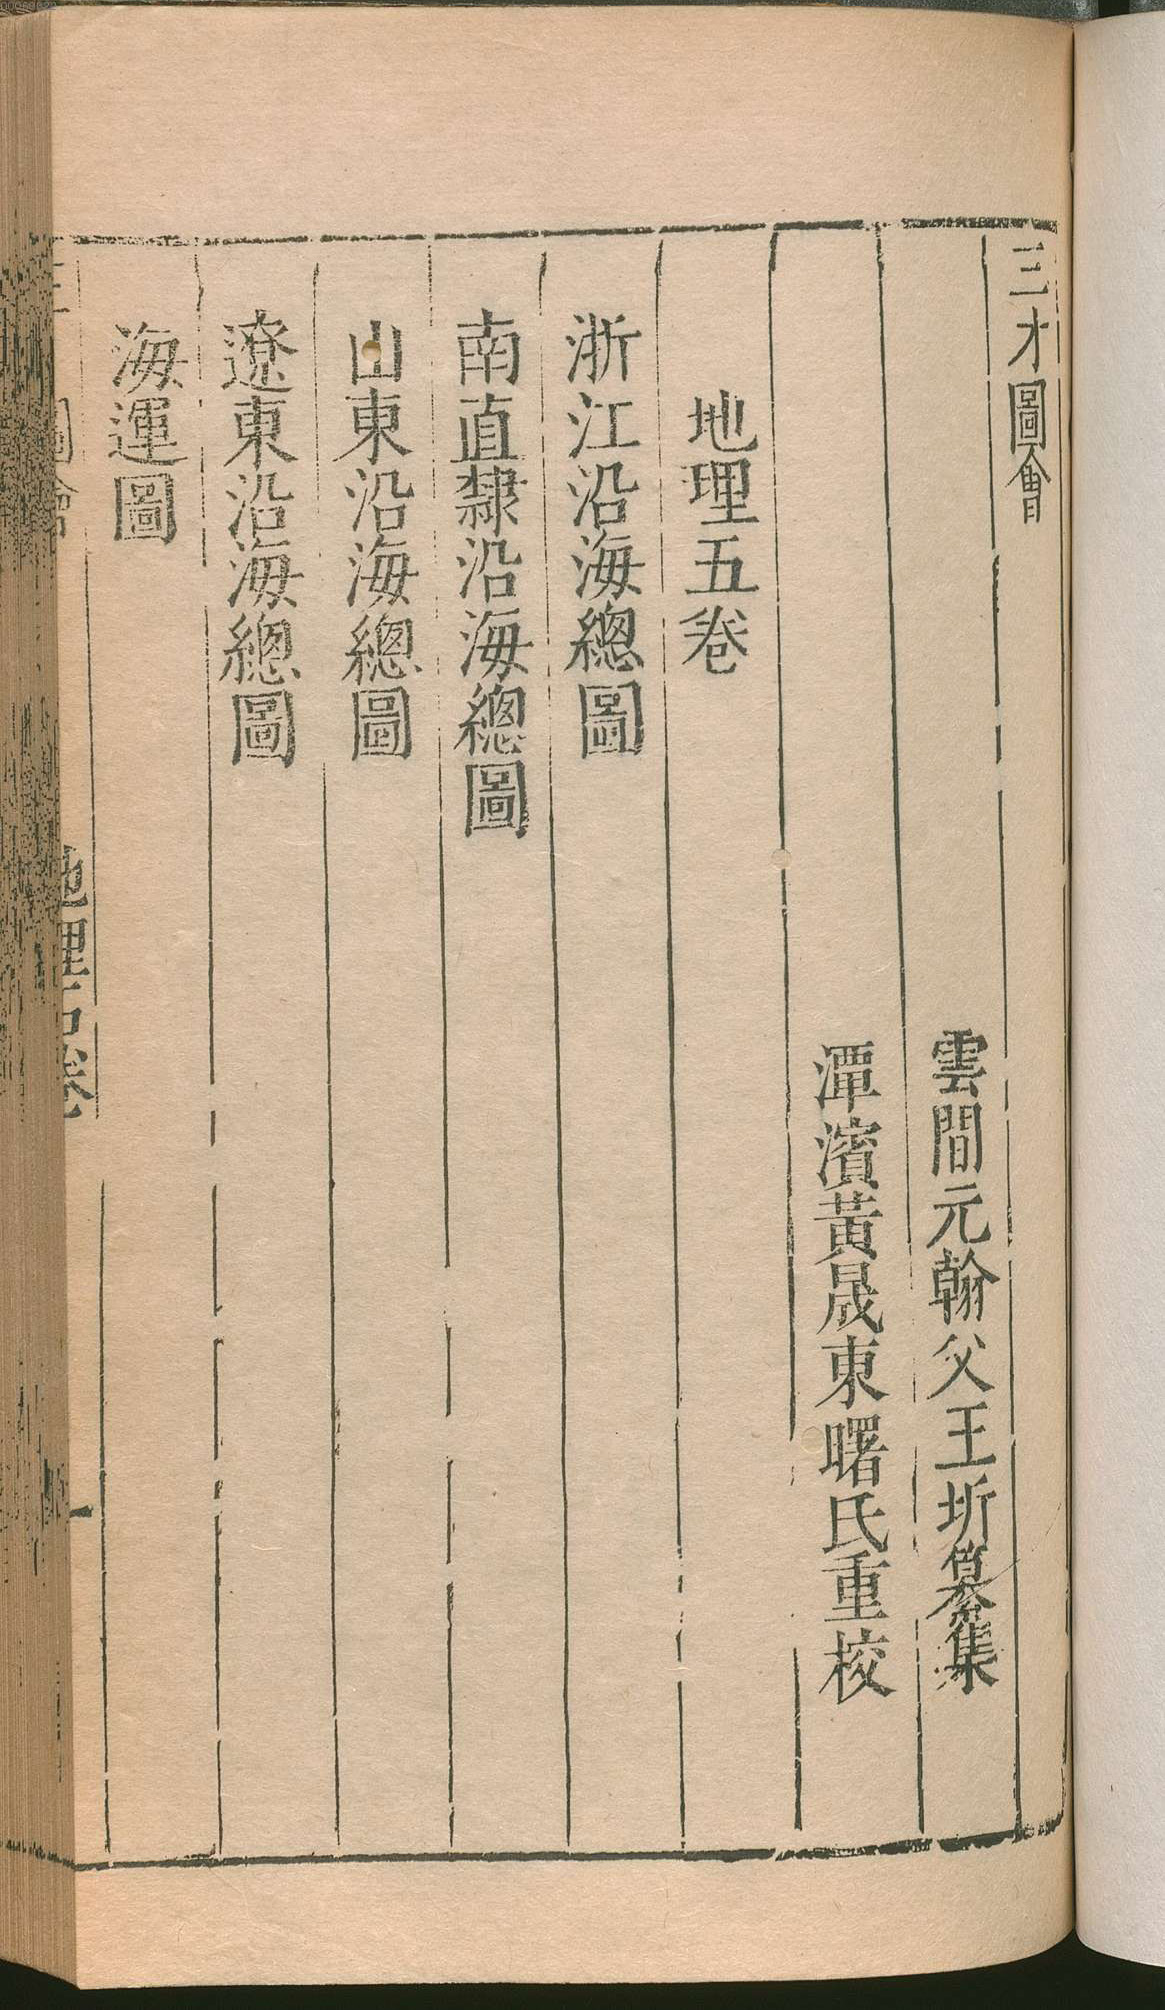 三才圖會
雲間元翰父王圻纂集
潭濱黃晟東曙氏重校
地理五卷
浙江沿海總圖
南直隸沿海總圖
山東沿海總圖
遼東沿海總圖
海運圖
地理五卷
一